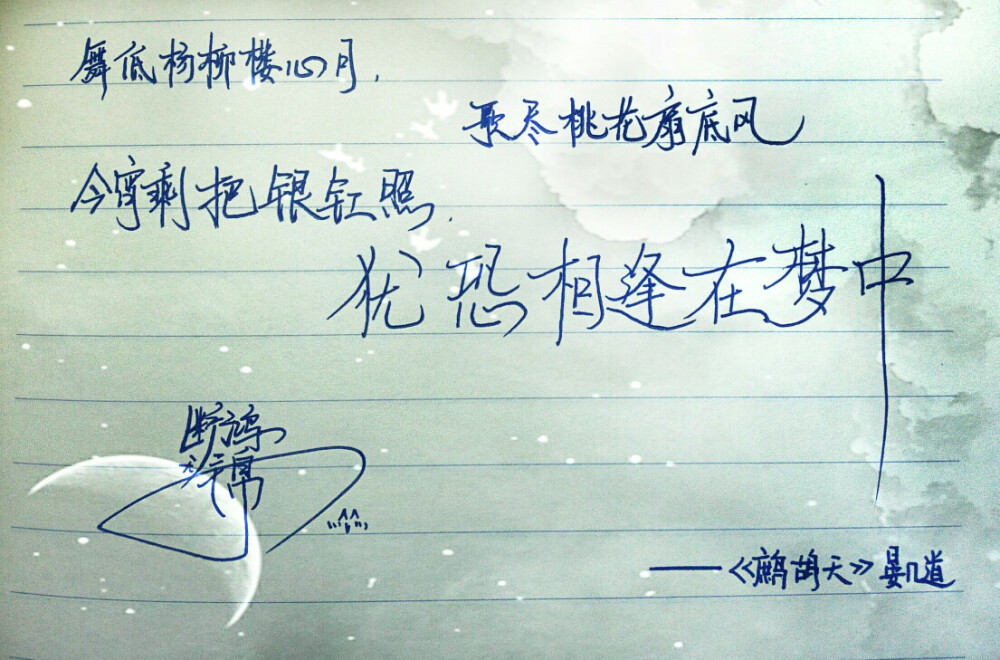 舞低杨柳楼心月，
歌尽桃花扇底风
今宵剩把银缸照．
犹恐相逢在梦中
断鸿
——《鹧鸪天》晏几道